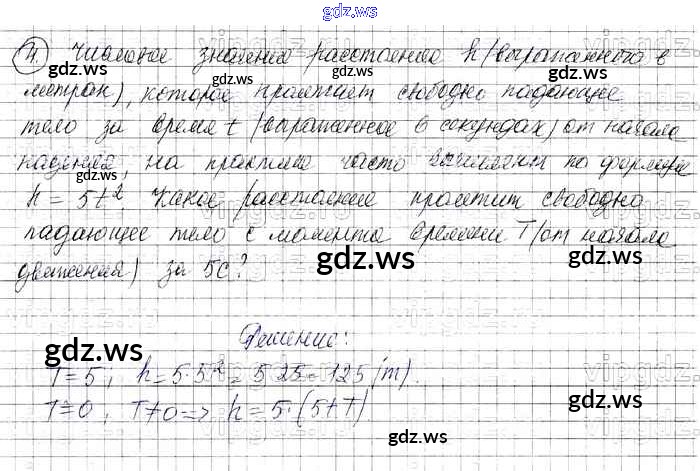 gdz.ws
4. Числовое значение расстояния h (выраженного в
метрах), которое пролетает свободно падающее
тело за время t (выраженное в секундах) от начала
падения, на практике часто вычисляют по формуле
h = 5t². Какое расстояние пролетит свободно
падающее тело с момента времени T (от начала
движения) за 5с?
Решение:
T=5; h=5·5²=5·25=125 (m).
T=0; T≠0 => h=5·(5+T)